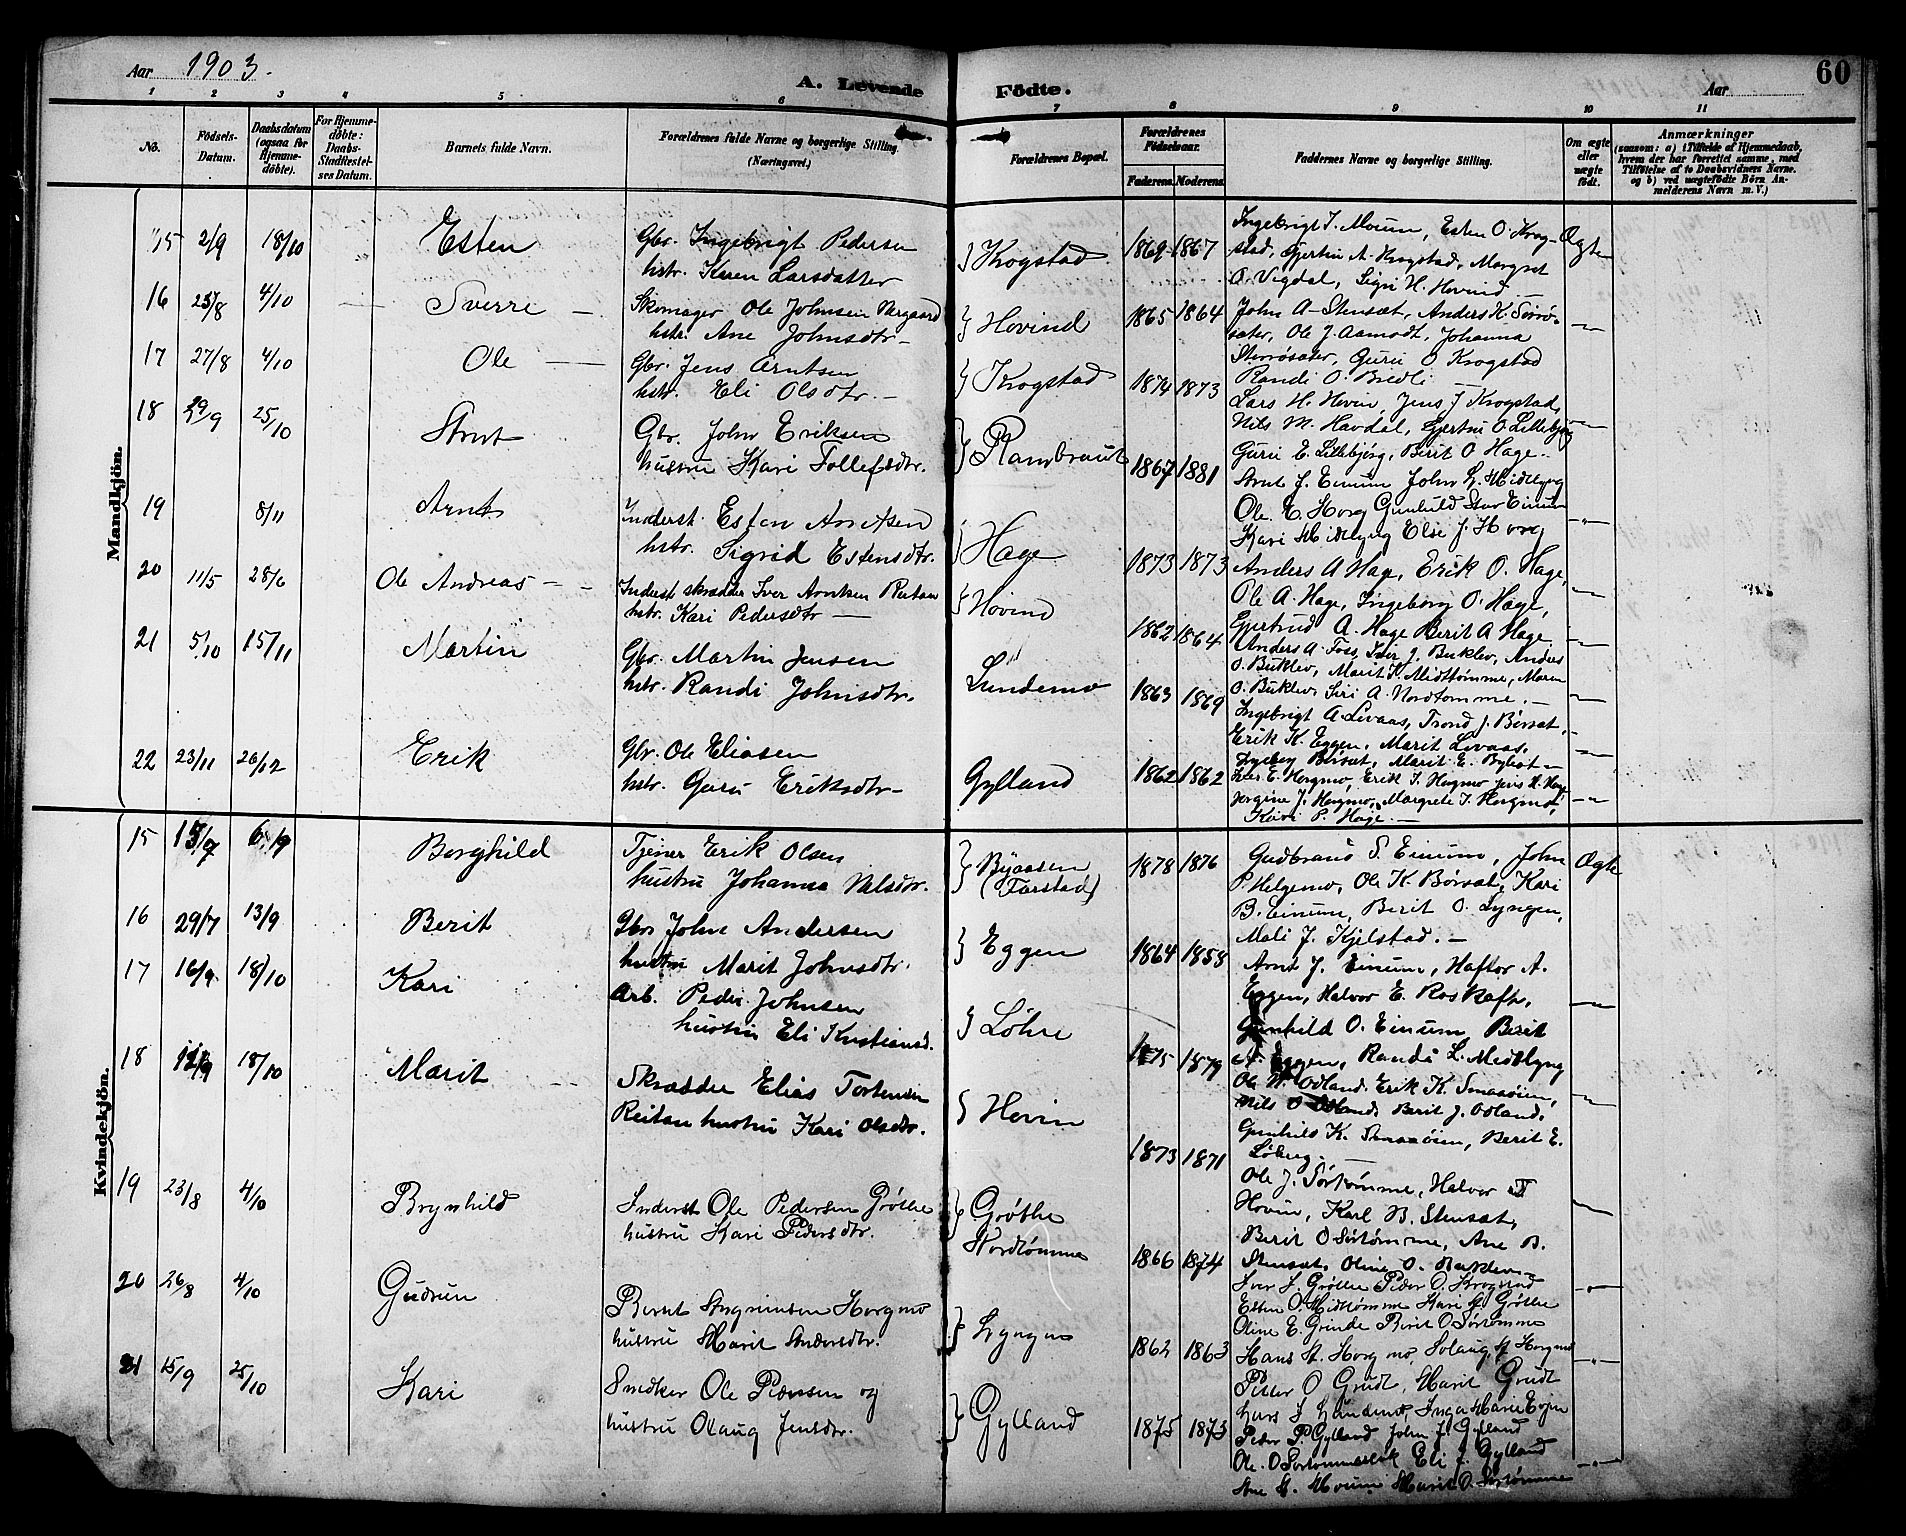 Aar 1903.
A. Levende
Födte.
Aar
60
1 2 3 4 5 6 7 8 9 10 11
No.
Födsels-
Datum.
Daabsdatum
(ogsaa for
Hjemme-
döbte).
For Hjemme-
döbte:
Daabs-
Stadfæstel-
ses Datum.
Barnets fulde Navn.
Forældrenes fulde Navne og borgerlige Stilling
(Næringsvei.)
Forældrenes Bopæl.
Forældrenes
Födselsaar.
Faderens. Moderens.
Faddernes Navne og borgerlige Stilling.
Om ægte
eller
uægte
födt.
Anmærkninger
(saasom: a) i Tilfælde af Hjemmedaab,
hvem der har forrettet samme, med
Tilföielse af to Daabsvidners Navne.
og b) ved uægtefödte Börn An-
melderens Navn m. V.)
Mandkjön.
15 2/9 18/10 Esten
Gbr. Ingebrigt Pedersen
hstr. Karen Larsdatter
Krogstad 1869 1867
Ingebrigt J. Moum, Esten O. Krog-
stad, Gjertru A. Krogstad, Margret
O. Vigdal, Sigri H. Hovind
Ægte
16 25/8 4/10 Sverre
Skomager Ole Johnsen
hstr. Ane Johnsdtr
Hovind 1865 1864
John A. Stensæt, Anders K.
Ole J. Aamodt, Johanna
Guru O Krogstad
Randi O. Bredli
17 27/8 4/10 Ole
Gbr. Jens Arntsen
hstr. Eli Olsdtr.
Krogstad 1874 1873
Lars H. Hovin, Jens J Krogstad,
Nils M. Havdal, Gjertru O Lillebjørg
Guru E. Lillebjørg, Berit O Hage
18 29/9 25/10 Arnt
Gbr. John Eriksen
hustru Kari Tollefsdtr.
1867 1881
Arnt J. Einum John L. Midtlyng
Ole E. Horg Gunhild Stor Einum
Kari Midtlyng Else J. Horg
19 8/11 Arnt
Inderst. Esten Arntsen
hstr. Sigrid Estensdtr.
Hage 1873 1873
Anders A Hage, Erik O. Hage,
Ole A. Hage, Ingeborg O. Hage,
Gjertrud A. Hage Berit A Hage
20 11/5 28/6 Ole Andreas
Inderst skrædder Iver Arntsen Reitan
hstr. Kari Pedersdtr
Hovind 1862 1864
Anders A. Foss, Iver J. Buklev, Anders
O. Buklev, Marit K. Midttømme, Maren
O. Buklev, Siri A. Nordtømme.
21 5/10 15/11 Martin
Gbr. Martin Jensen
hstr. Randi Johnsdtr.
Lundemo 1863 1869
Ingebrigt A. Levaas, Trond J. Børsæt,
Erik K. Eggen, Marit Levaas,
Ingebor Børsæt, Marit E.
22 23/11 26/12 Erik
Gbr. Ole Eliasen
hstr. Guru Eriksdtr
Gylland 1862 1862
Iver E. Horgmo, Erik I. Horgmo Jens H. Hage
Jorgine J. Horgmo, Margrete I. Horgmo,
Kari P. Hage.
Kvindekjön.
15 15/7 6/9 Borghild
Tjener Erik Olsen
hustru Johanna Nilsdtr.
Byaasen
(Tarstad)
1878 1876
Gudbrand S. Einum, John
P. Helgemo, Ole K. Børsæt, Kari
B. Einum, Berit O. Lyngen,
Mali J. Kjelstad.
Ægte
16 29/7 13/9 Berit
Gbr John Andersen
hustru Marit Johnsdtr.
Eggen 1864 1858
Arnt J. Einum, Haftor A.
Eggen, Halvor E. Roskaft,
Gunhild O. Einum, Berit
A. Eggen, Randi L. Midtlyng
17 16/9 18/10 Kari
Arb. Peder Johnsen
hustru Eli Kristiansd.
Løhre 1875 1879
Ole N. Ødland. Erik K. Smaaøien,
Nils O Ødland, Berit J. Ødland,
Gunhild K. Smaaøien, Berit E.
Løberg.
18 12/9 18/10 Marit
Skrædder Elias Tortensen
Reitan hustru Kari Olsdtr.
Hovin 1873 1871
Ole J. Sørtømme, Halvor T
Hovin, Karl B. Stensæt,
Berit O Sørtømme, Ane B.
Stensæt, Oline O. Buklev
19 23/8 4/10 Brynhild
Inderst Ole Pedersen Grøthe
hustru Kari Pedersdtr.
Grøthe
Nordtømme
1866 1874
Iver J. Grøthe Peder O. Krogstad
Esten O. Midttømme Kari Grøthe
Oline E. Grinde Berit O Sørtømme
20 26/8 4/10 Gudrun
Bernt Horgmo
hustru Marit Andersdtr.
Lyngen 1862 1863
Hans A. Horgmo, Solaug A. Horgmo
Peder O Grudt, Marit Grudt
Lars J Lundemo, Inga Marie Evjen
21 15/9 25/10 Kari
Snedker Ole Pedersen og
hustru Olaug Jensdtr.
Gylland 1875 1873
Peder P. Gylland John J. Gylland
Ole O Sørtømme Eli J. Gylland
Ane A. Moum Marit O. Sørtømme